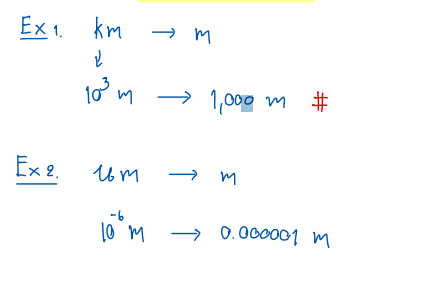 Ex 1. km → m
↓
10³ m → 1,000 m #
Ex 2. um → m
10⁻⁶ m → 0.000001 m